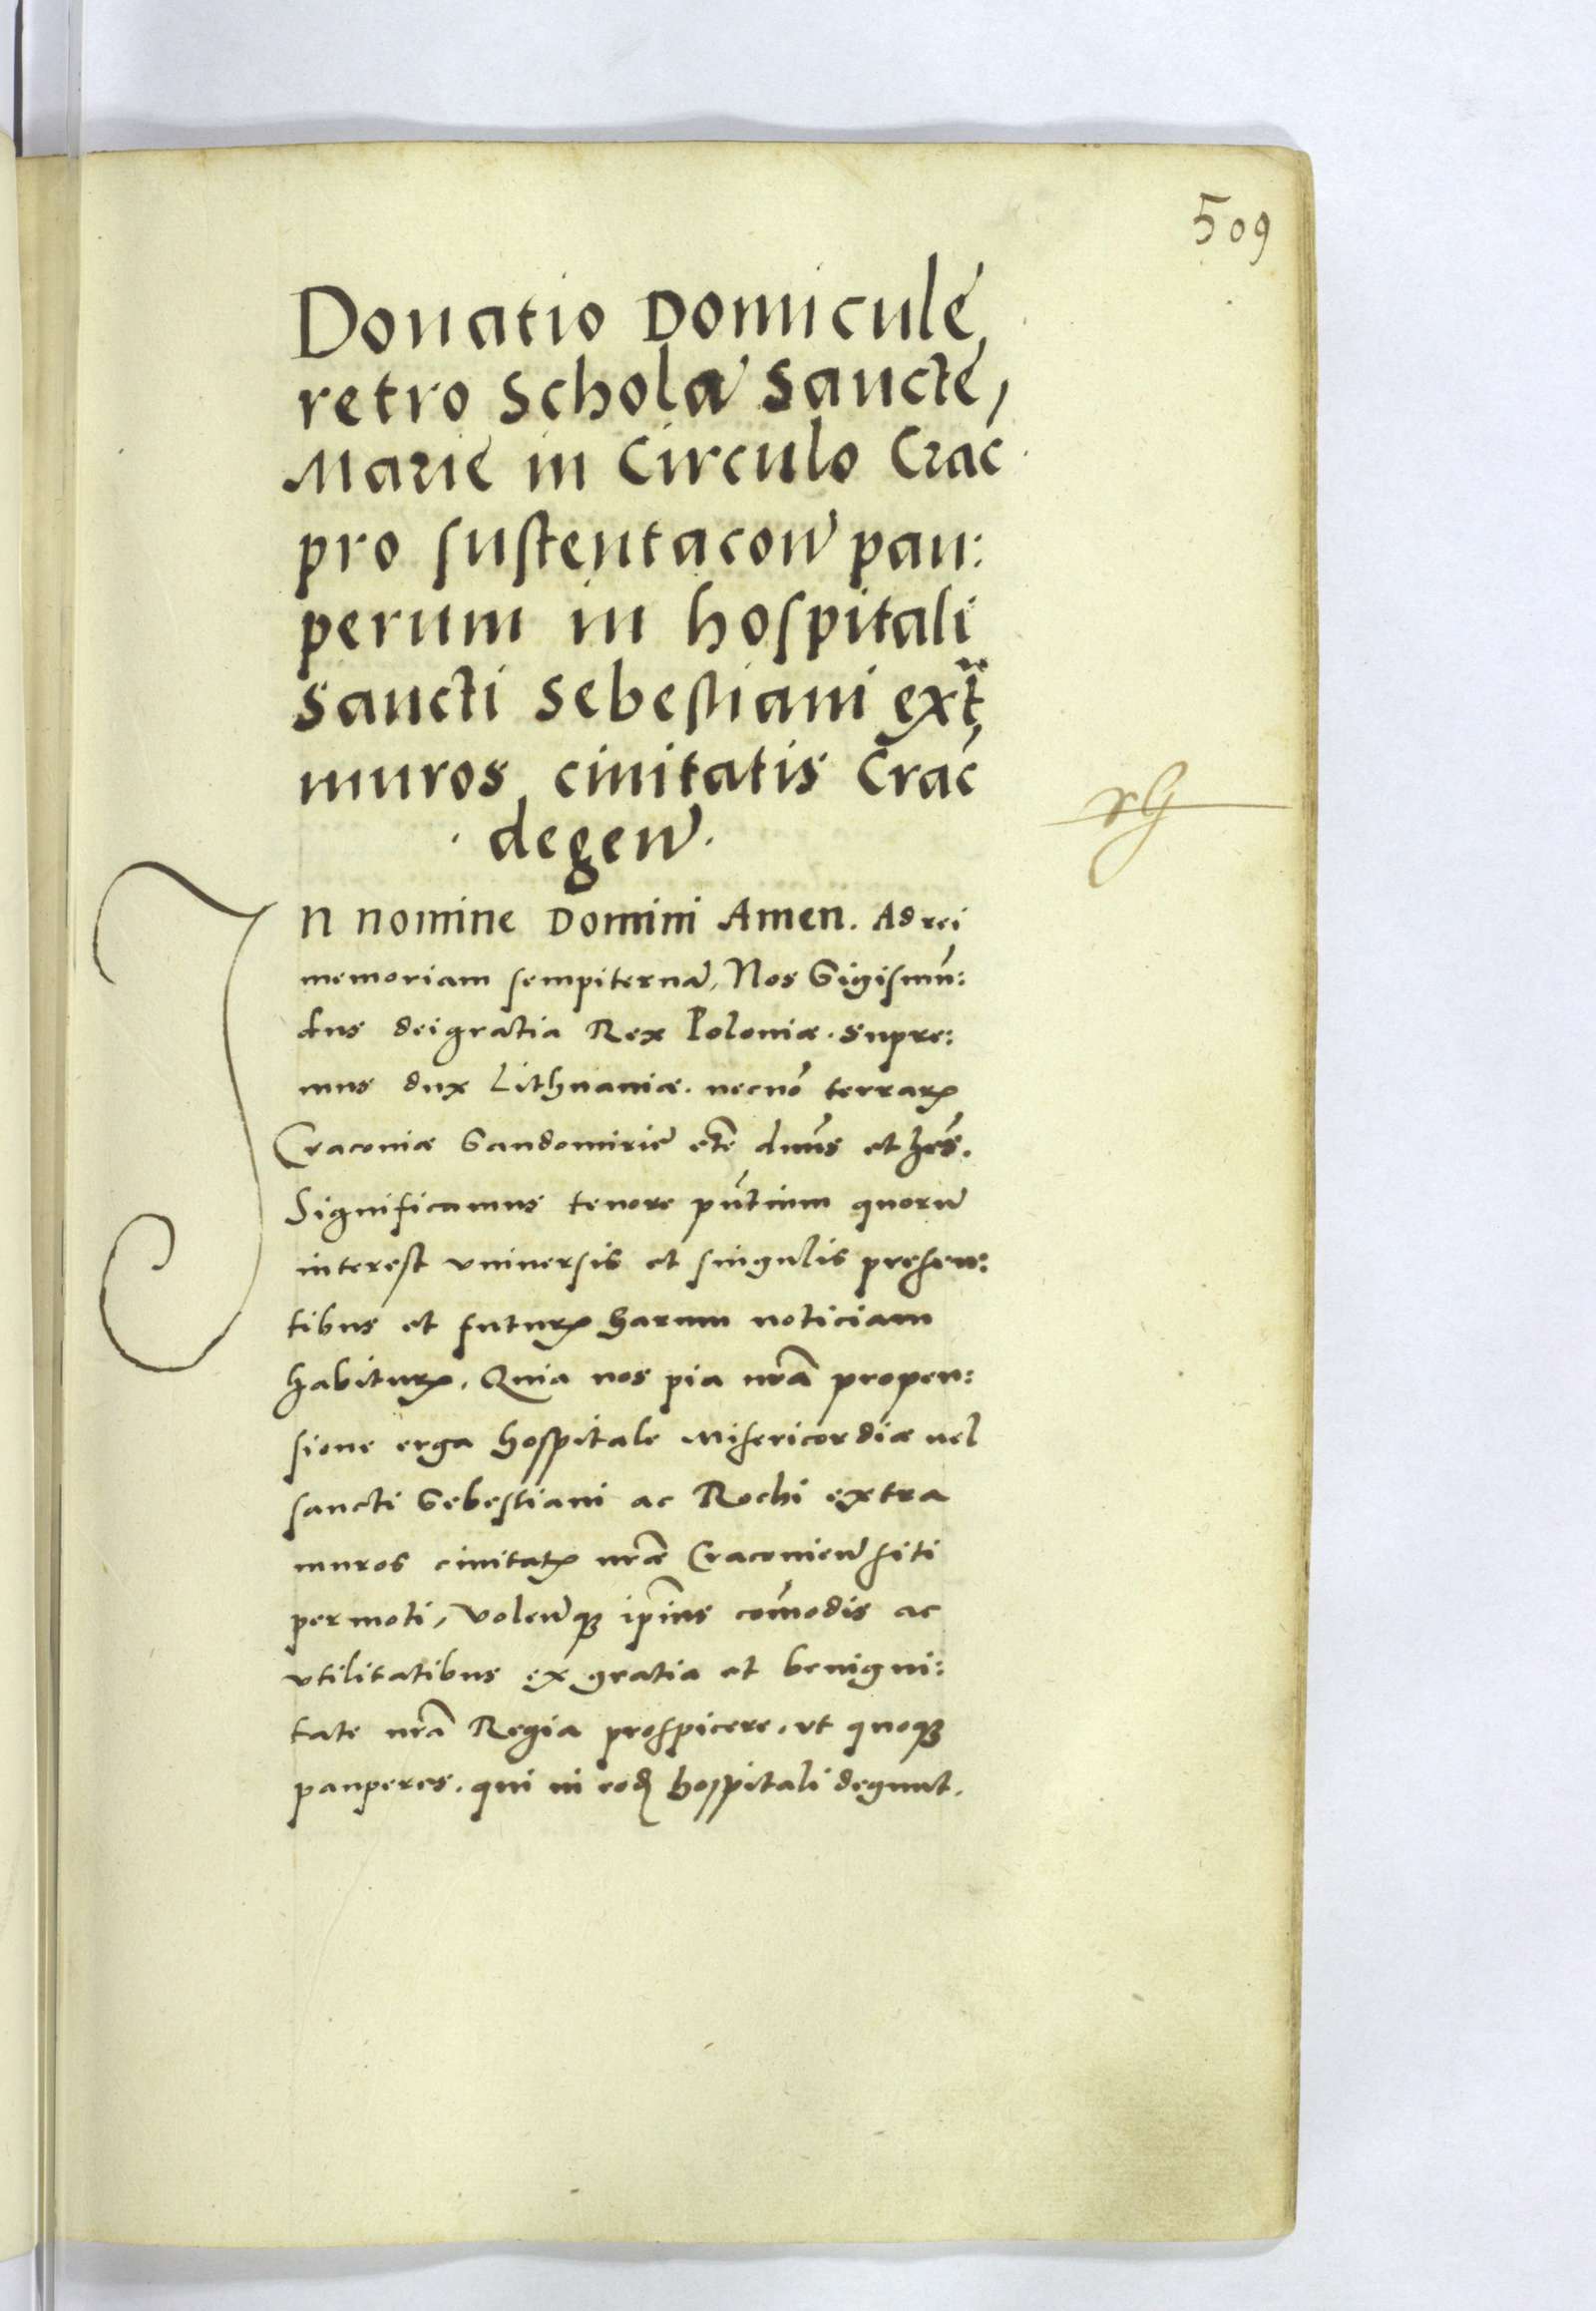 509
Donatio Domiculę
retro Schola Sanctę,
Marię in Circulo Crac
pro sustentacon pau:
perum in hospitali
Sancti Sebestiani extª
muros civitatis Crac
· degen ·
In nomine Domini Amen. Ad rei
memoriam sempiternã, Nos Sigismũ:
dus dei gratia Rex Poloniæ. Supre:
mus dux Lithuaniæ. necnõ terrarꝝ
Cracoviæ Sandomirię etc̃ dñus et hęs.
Significamus tenore pñtium quorũ
interest vniuersis et singulis presen:
tibus et futurꝝ harum noticiam
habiturꝝ. Quia nos pia nrã propen:
sione erga hospitale Misericordiæ vel
sancti Sebestiani ac Rochi extra
muros civitatꝭ nr̃æ Cracovieñ siti
permoti, volenꝗ ip̃ius com̃odis ac
vtilitatibus ex gratia et benigni:
tate nrã Regia prospicere. vt quoqꝫ
pauperes. qui in eod̃ hospitali degunt.